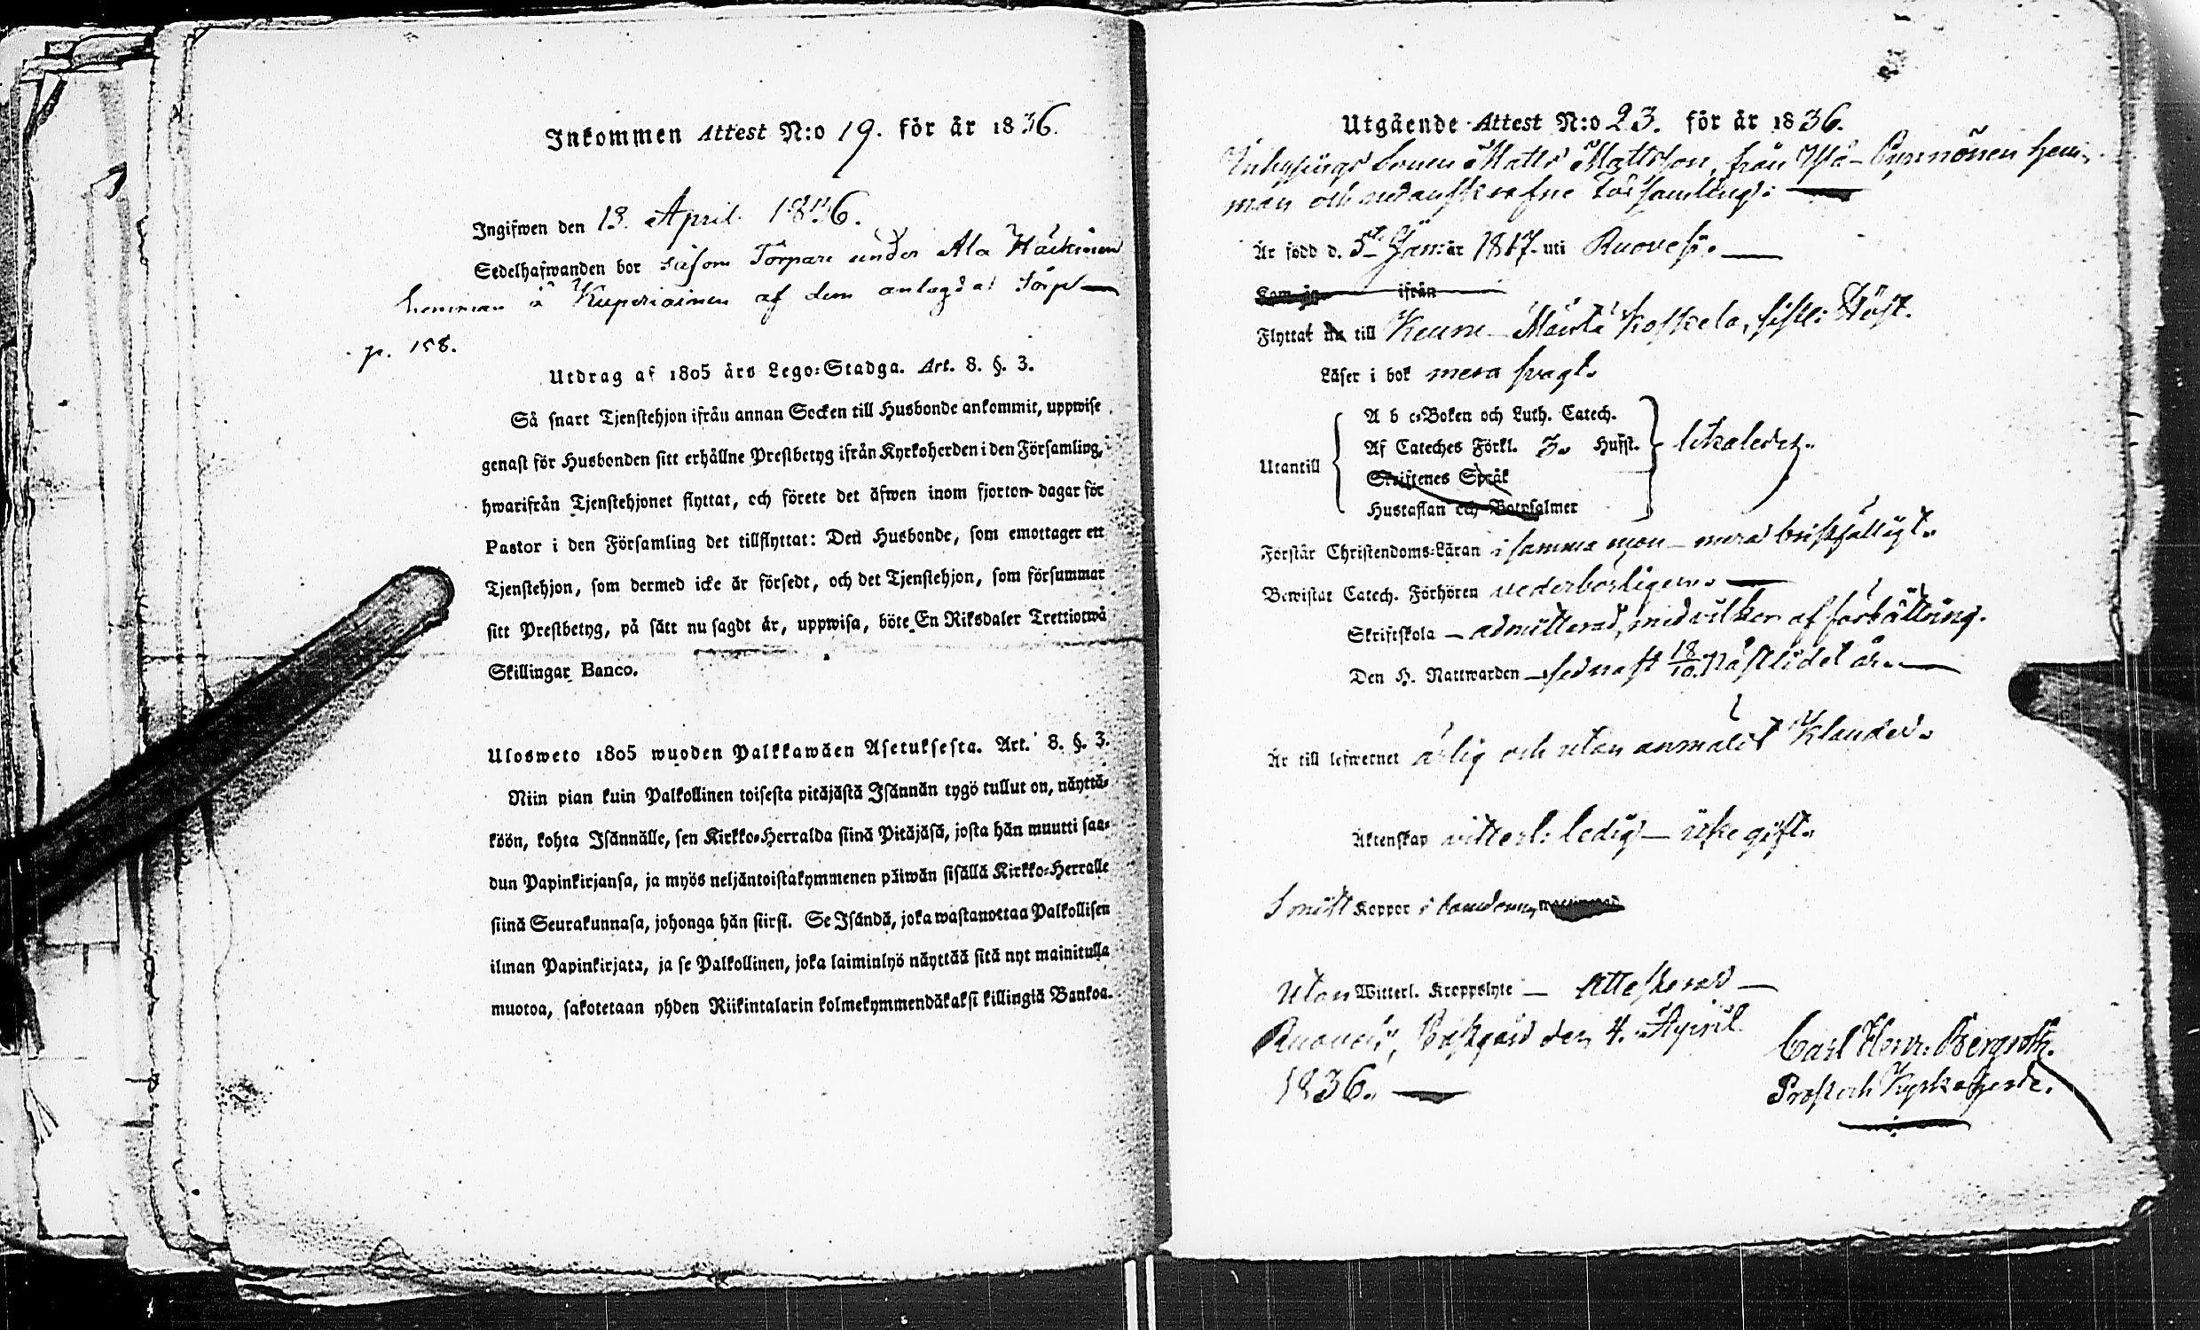 Inkommen Attest N:o 19. för år 1836.
Ingifwen den 13. April 1836.
Sedelhafwanden bor såsom Torpare under Ala Häckinen
hemman å Kuperiainen af dem anlagda torp
p. 158.
Utdrag af 1805 års Lego-Stadga. Art. 8. §. 3.
Så snart Tjenstehjon ifrån annan Socken till Husbonde ankommit, uppwise
genast för Husbonden sitt erhållne Prestbetyg ifrån Kyrkoherden i den Församling,
hwarifrån Tjenstehjonet flyttat, och förete det äfwen inom fjorton dagar för
Pastor i den Församling det tillflyttat: Den Husbonde, som emottager ett
Tjenstehjon, som dermed icke är försedt, och det Tjenstehjon, som försummar
sitt Prestbetyg, på sätt nu sagdt är, uppwisa, böte En Riksdaler Trettiotwå
Skillingar Banco.
Ulosweto 1805 wuoden Palkkawäen Asetuksesta. Art. 8. §. 3.
Niin pian kuin Palkollinen toisesta pitäjästä Isännän tygö tullut on, näyttä-
köön, kohta Isännälle, sen Kirkko-Herralda siinä Pitäjäsä, josta hän muutti saa-
dun Papinkirjansa, ja myös neljäntoistakymmenen päiwän sisällä Kirkko-Herralle
siinä Seurakunnasa, johonga hän siirsi. Se Isändä, joka wastanottaa Palkollisen
ilman Papinkirjata, ja se Palkollinen, joka laiminlyö näyttää sitä nyt mainitulla
muotoa, sakotetaan yhden Riikintalarin kolmekymmendäkaksi killingiä Bankoa.
Utgående Attest N:o 23. för år 1836.
Inhysings Sonen Matts Mattsson, från Ylä-Pynnönen hem-
man och nedanskrefne Församling:
Är född d. 5te Jan: år 1817. uti Ruovesi.
Kom ifrån
Flyttat nu till Keuru Mänttä Koskela,
Läser i bok mera svagt.
A b c-Boken och Luth. Catech.
Af Cateches Förkl. 3. Hufst.
Utantill
Skriftenes Språk
Hustaflan och Botpsalmer
Förstår Christendoms-Läran i samma mon mera bristfälligt.
Bewistat Catech. Förhören vederbörligen.
Skriftskola admitterad, med vilkor af förbättring.
Den H. Nattwarden sednast 18/10. nästlidet år.
Är till lefwernet ärlig och utan anmäldt klander.
Äktenskap vitterl: ledig icke gift.
Smitt Koppor i barndomen,
Utan Witterl. Kroppslyte Attesterad
Ruovesi, Prestgård den 4. April
1836.
Carl Henr: Bergroth.
Prost och Kyrkoherde.